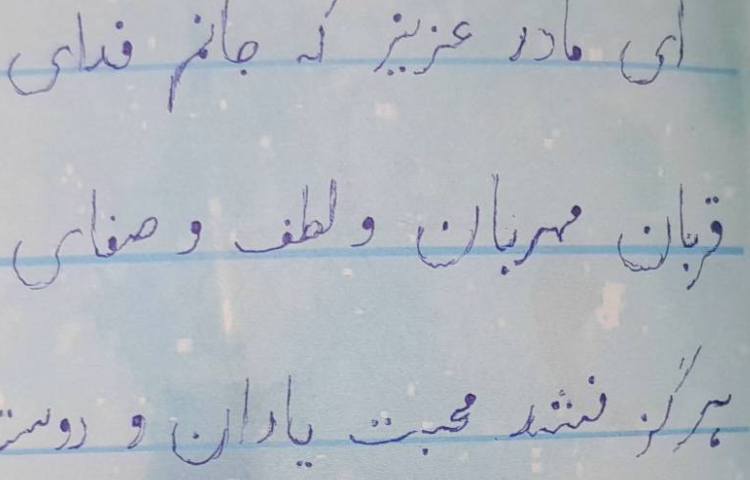 ای مادر عزیز که جانم فدای
قربان مهربان و لطف و صفای
هرگز نشد محبت یاران و دوست